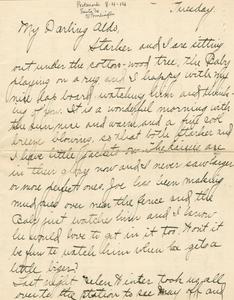 Postmark 8-4-14
Tuesday.
My Darling Aldo,
Starker and I are sitting
out under the cotton-wood tree, the Baby
playing on a rug and I happy with my
nice lap board, watching him and think-
ing of you. It is a wonderful morning with
the sun nice and warm and a full soft
breeze blowing, so that both Starker and
I have little jackets on. The daisies are
in their glory now and I never saw larger
or more perfect ones. Joe has been making
mud pies over near the fence and the
Baby just watches him and I know
he would love to get in it too. Won't it
be fun to watch him when he gets a
little bigger?
Last night Helen Hinter took us all
over to the station to see May off and